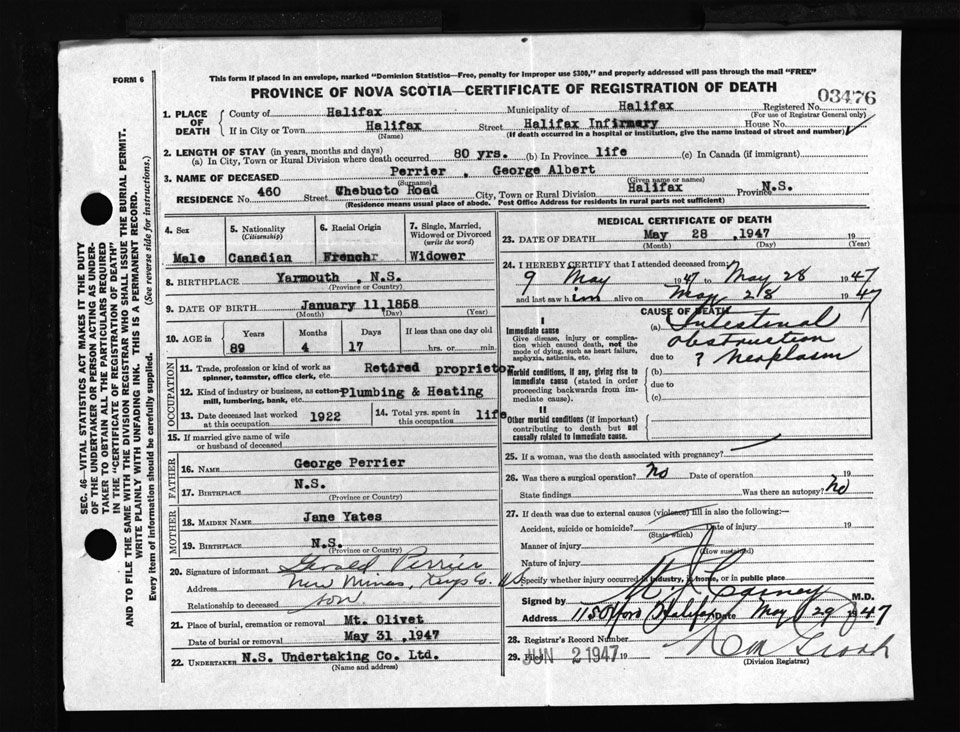 FORM 6
This form if placed in an envelope, marked "Dominion Statistics—Free, penalty for improper use $300," and properly addressed will pass through the mail "FREE"
PROVINCE OF NOVA SCOTIA—CERTIFICATE OF REGISTRATION OF DEATH
03476
1. PLACE OF DEATH
County of Halifax Municipality of Halifax Registered No.
(For use of Registrar General only)
If in City or Town Halifax Street Halifax Infirmary House No.
(Name) (If death occurred in a hospital or institution, give the name instead of street and number)
2. LENGTH OF STAY (in years, months and days)
(a) In City, Town or Rural Division where death occurred 80 yrs. (b) In Province life (c) In Canada (if immigrant)
3. NAME OF DECEASED Perrier , George Albert
(Surname) (Given name or names)
RESIDENCE No. 460 Street Chebucto Road City, Town or Rural Division Halifax Province N.S.
(Residence means usual place of abode. Post Office Address for residents in rural parts not sufficient)
4. Sex
Male
5. Nationality
(Citizenship)
Canadian
6. Racial Origin
French
7. Single, Married, Widowed or Divorced
(write the word)
Widower
8. BIRTHPLACE Yarmouth , N.S.
(Province or Country)
9. DATE OF BIRTH January 11,1858
(Month) (Day) (Year)
10. AGE in Years Months Days If less than one day old
89 4 17 hrs. or min.
OCCUPATION
11. Trade, profession or kind of work as spinner, teamster, office clerk, etc. Retired proprietor
12. Kind of industry or business, as cotton mill, lumbering, bank, etc. Plumbing & Heating
13. Date deceased last worked at this occupation 1922
14. Total yrs. spent in this occupation life
15. If married give name of wife or husband of deceased
FATHER
16. NAME George Perrier
17. BIRTHPLACE N.S.
(Province or Country)
MOTHER
18. MAIDEN NAME Jane Yates
19. BIRTHPLACE N.S.
(Province or Country)
20. Signature of informant Gerald Perrier
Address New Minas, Kings Co. N.S.
Relationship to deceased son
21. Place of burial, cremation or removal Mt. Olivet
Date of burial or removal May 31 ,1947
22. UNDERTAKER N.S. Undertaking Co. Ltd.
(Name and address)
MEDICAL CERTIFICATE OF DEATH
23. DATE OF DEATH May 28 ,1947 19
(Month) (Day) (Year)
24. I HEREBY CERTIFY that I attended deceased from
9 May 1947 to May 28 1947
and last saw him alive on May 28 1947
CAUSE OF DEATH
I
Immediate cause
Give disease, injury or complication which caused death, not the mode of dying, such as heart failure, asphyxia, asthenia, etc.
(a) Intestinal
obstruction
due to ? Neoplasm
Morbid conditions, if any, giving rise to immediate cause (stated in order proceeding backwards from immediate cause).
(b)
due to
(c)
II
Other morbid conditions (if important) contributing to death but not causally related to immediate cause.
25. If a woman, was the death associated with pregnancy?
26. Was there a surgical operation? No Date of operation 19
State findings Was there an autopsy? No
27. If death was due to external causes (violence) fill in also the following:—
Accident, suicide or homicide? Date of injury 19
(State which)
Manner of injury
(How sustained)
Nature of injury
Specify whether injury occurred in industry, in home, or in public place
Signed by M.D.
Address Halifax Date May 29 1947
28. Registrar's Record Number
29. Filed JUN 2 1947 19
(Division Registrar)
SEC. 46—VITAL STATISTICS ACT MAKES IT THE DUTY
OF THE UNDERTAKER OR PERSON ACTING AS UNDER-
TAKER TO OBTAIN ALL THE PARTICULARS REQUIRED
IN THE "CERTIFICATE OF REGISTRATION OF DEATH"
AND TO FILE THE SAME WITH THE DIVISION REGISTRAR WHO SHALL ISSUE THE BURIAL PERMIT.
WRITE PLAINLY WITH UNFADING INK. THIS IS A PERMANENT RECORD.
Every item of information should be carefully supplied. (See reverse side for instructions.)